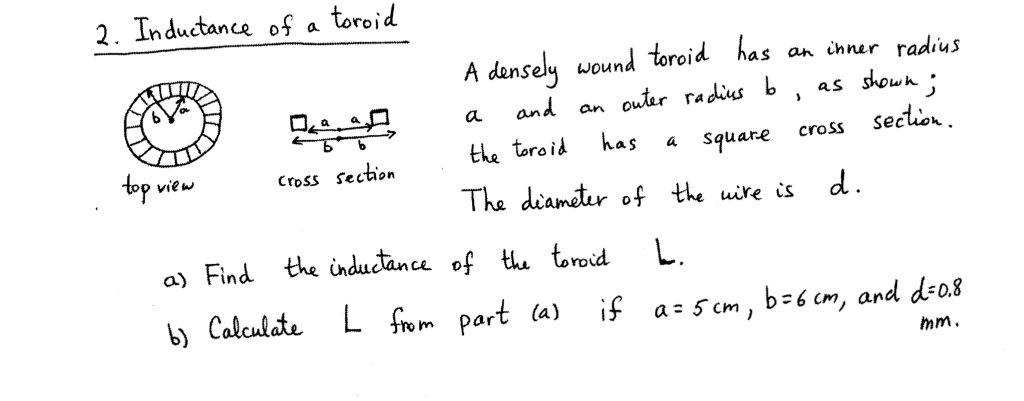 2. Inductance of a toroid
A densely wound toroid has an inner radius
a and an outer radius b, as shown;
the toroid has a square cross section.
The diameter of the wire is d.
b a
top view
a a
b b
cross section
a) Find the inductance of the toroid L.
b) Calculate L from part (a) if a = 5 cm, b = 6 cm, and d = 0.8
mm.